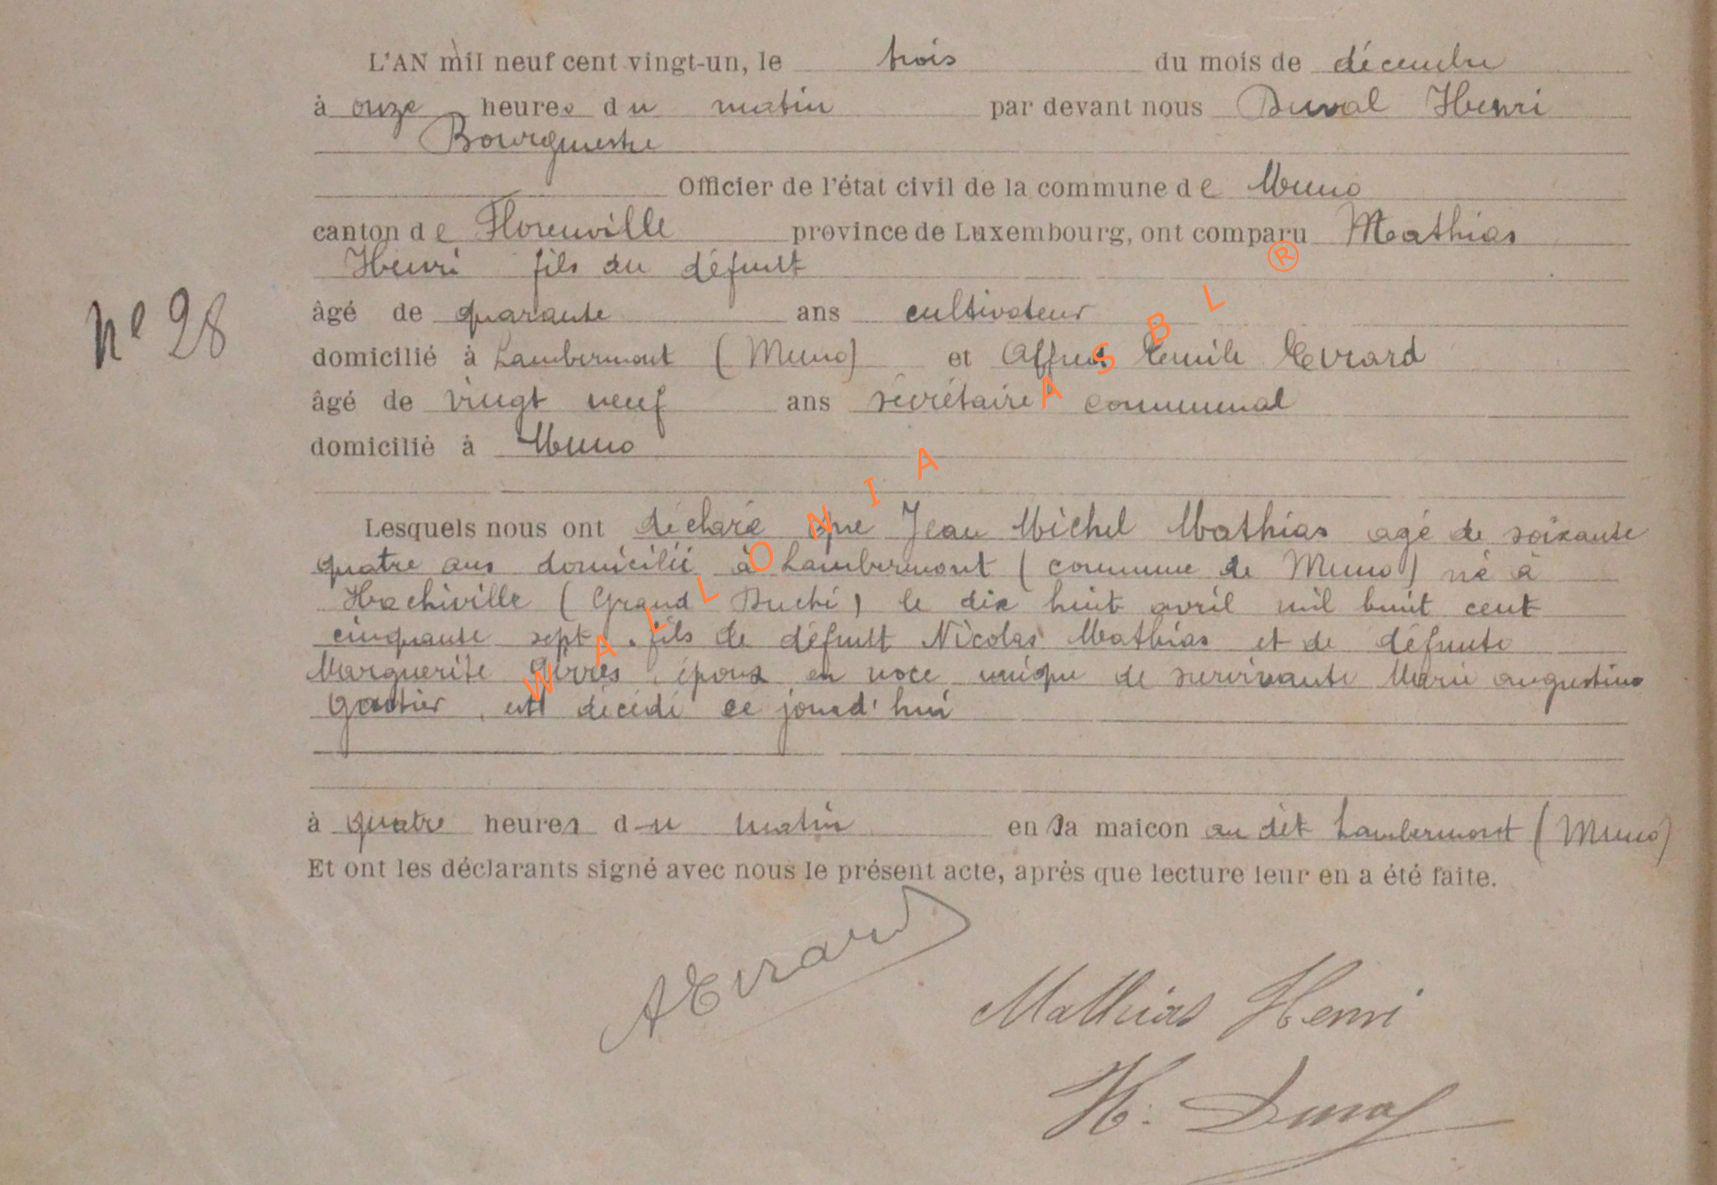 L'AN mil neuf cent vingt-un, le trois du mois de décembre
à onze heures du matin par devant nous Duval Henri
Bourgmestre
Officier de l'état civil de la commune de Muno
canton de Florenville province de Luxembourg, ont comparu Mathias
Henri fils du défunt
âgé de quarante ans cultivateur
nº 28
domicilié à Lambermont (Muno) et Alfred Emile Evrard
âgé de vingt neuf ans secrétaire communal
domicilié à Muno
Lesquels nous ont déclaré que Jean Michel Mathias agé de soixante
quatre ans domicilié à Lambermont (commune de Muno) né à
Hachiville (Grand Duché) le dix huit avril mil huit cent
cinquante sept, fils de défunt Nicolas Mathias et de défunte
Marguerite époux en noce unique de survivante Marie augustine
est décédé ce jourd'hui
à quatre heures du matin en sa maison au dit Lambermont (Muno)
Et ont les déclarants signé avec nous le présent acte, après que lecture leur en a été faite.
AEvrard
Mathias Henri
H. Duval
WALLONIA ASBL ®